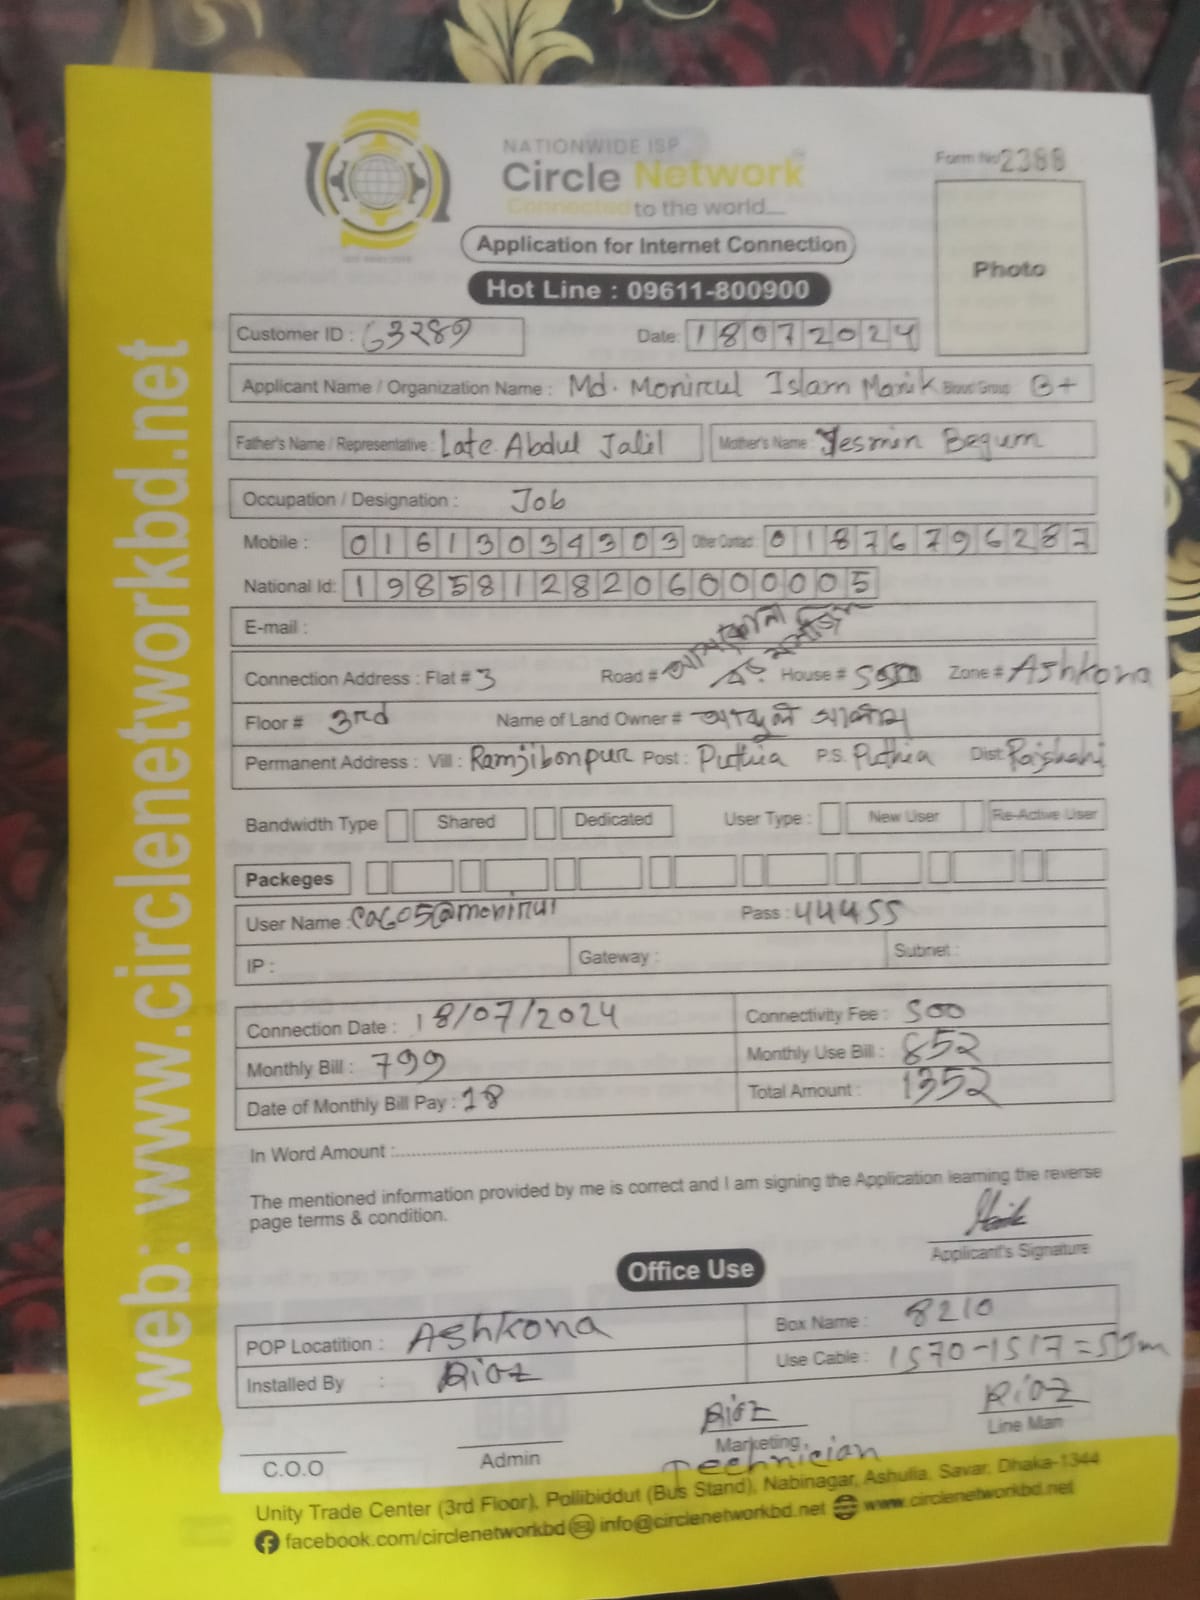 NATIONWIDE ISP
Circle Network
Connected to the world....
Form No 2388
Application for Internet Connection
Photo
Hot Line : 09611-800900
Customer ID : 63289 Date: 18072024
Applicant Name / Organization Name : Md. Monirul Islam Manik Blood Group B+
Father's Name / Representative : Late. Abdul Jalil Mother's Name : Yesmin Begum
Occupation / Designation : Job
Mobile : 01613034303 Other Contact : 01876796287
National Id: 19858128206000005
E-mail :
Connection Address : Flat # 3 Road # House # Zone # Ashkona
Floor # 3rd Name of Land Owner #
Permanent Address : Vill : Ramjibonpur Post : Puthia P.S. Puthia Dist: Rajshahi
Bandwidth Type Shared Dedicated User Type : New User Re-Active User
Packeges
User Name : Pass : 44455
IP : Gateway : Subnet :
Connection Date : 18/07/2024 Connectivity Fee : 500
Monthly Bill : 799 Monthly Use Bill : 852
Date of Monthly Bill Pay : 18 Total Amount : 1352
In Word Amount :
The mentioned information provided by me is correct and I am signing the Application learning the reverse
page terms & condition.
Applicant's Signature
Office Use
POP Locatition : Ashkona Box Name : 8210
Installed By : Riaz Use Cable : 1570-1517=53m
Riaz Riaz
C.O.O Admin Marketing, Line Man
Technician
Unity Trade Center (3rd Floor), Pollibiddut (Bus Stand), Nabinagar, Ashulia, Savar, Dhaka-1344
facebook.com/circlenetworkbd info@circlenetworkbd.net www.circlenetworkbd.net
web: www.circlenetworkbd.net